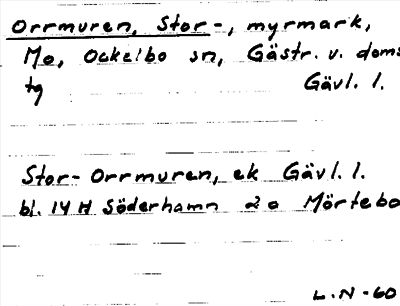 Orrmuren, Stor-, myrmark,
Mo, Ockelbo sn, Gästr. v. doms
tg Gävl. l.
Stor-Orrmuren, ek Gävl. l.
bl. 14 H Söderhamn 2 o Mörtebo
L.N-60